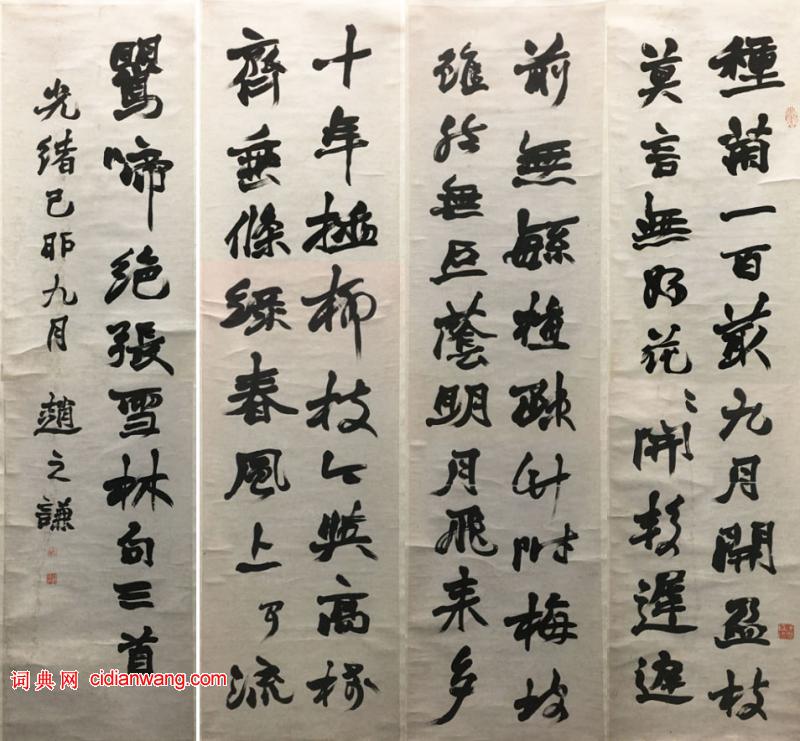 種菊一百叢九月開盈枝
莫言無好花〻開較遲庭
前無緐植疎竹附梅坡
雖然無巨蔭明月飛來多
十年插柳枝今與高樓
齊垂條綠春風上有流
鶯啼絶張雪林句三首
光緒己卯九月 趙之謙
词典网 cidianwang.com